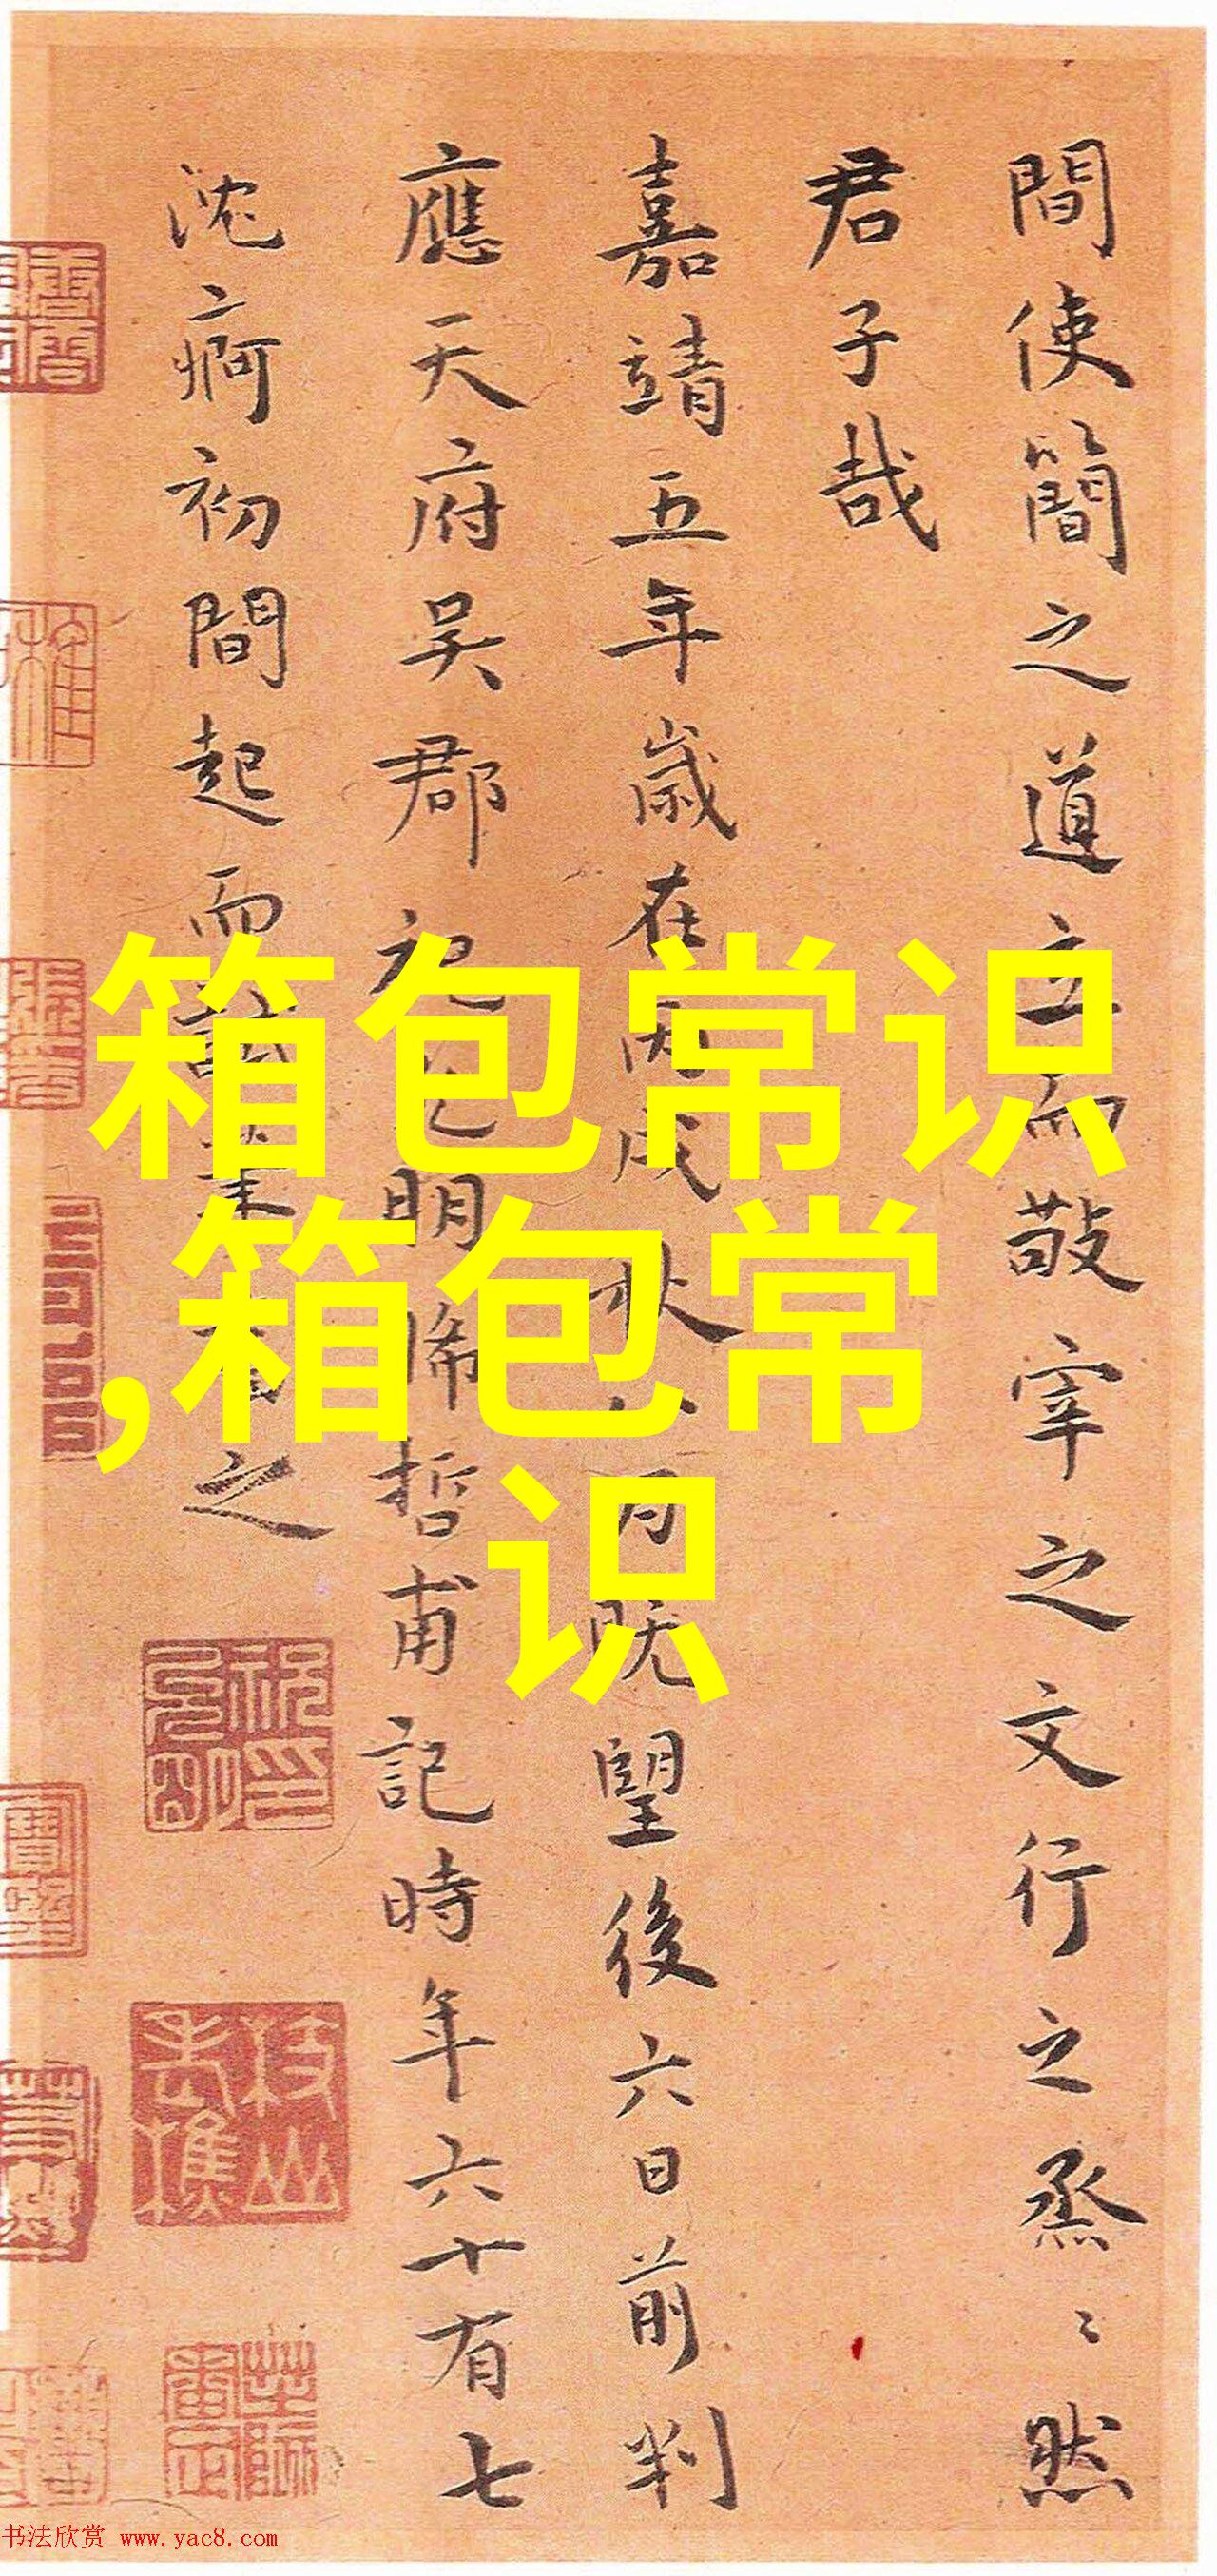 間使簡之道立而敬宰之文行之烝〻然
君子哉
嘉靖五年歲在丙戌秋八月既望後六日前判
應天府吳郡祝允明晞哲甫記時年六十有七
沈痾初間起而試筆書之
箱包常识
,箱包常
识
书法欣赏 www.yac8.com